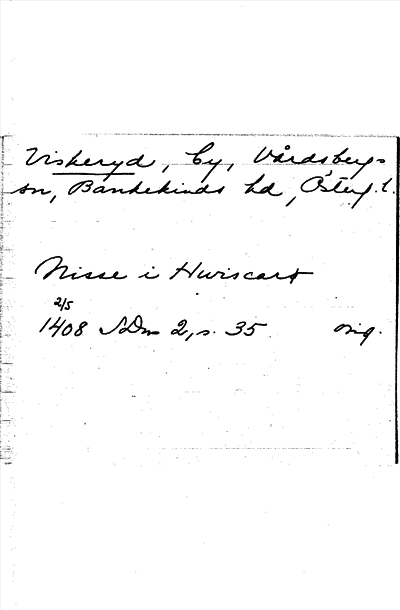 Viskeryd, by, Vårdsbergs
sn, Bankekinds hd, Österg.l.
Nisse i Hwiscart
2/5
1408 SDns 2, s. 35 orig.